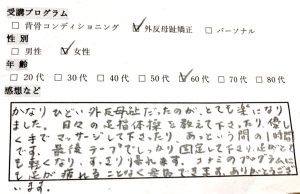 受講プログラム
□ 背骨コンディショニング ☑ 外反母趾矯正 □ パーソナル
性別
□ 男性 ☑ 女性
年齢
□ 20代 □ 30代 □ 40代 □ 50代 ☑ 60代 □ 70代 □ 80代
感想など
かなりひどい外反母趾だったのが、とても楽になり
ました。日々の足指体操を教えて下さったり、優し
く手でマッサージして下さったり、あっという間の1時間
です。最後テープでしっかり固定して下さり、足がとて
も軽くなり、すっきり帰れます。コナミのプログラムに
も足が疲れることなく参加できます。ありがとうござ
います。